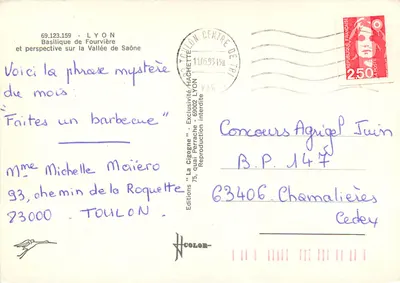 69.123.159 - LYON
Basilique de Fourvière
et perspective sur la Vallée de Saône
Voici la phrase mystère
du mois:
"Faites un barbecue"
Mme Michelle Maiero
93, chemin de la Roquette
83000 - TOULON -
Editions "La Cigogne" - Exclusivité HACHETTE
75, quai Perrache - 69002 LYON
Reproduction interdite
COLOR
TOULON CENTRE DE
2,50
Concours Agrigel Juin
B.P. 147
63406 - Chamalières
Cedex